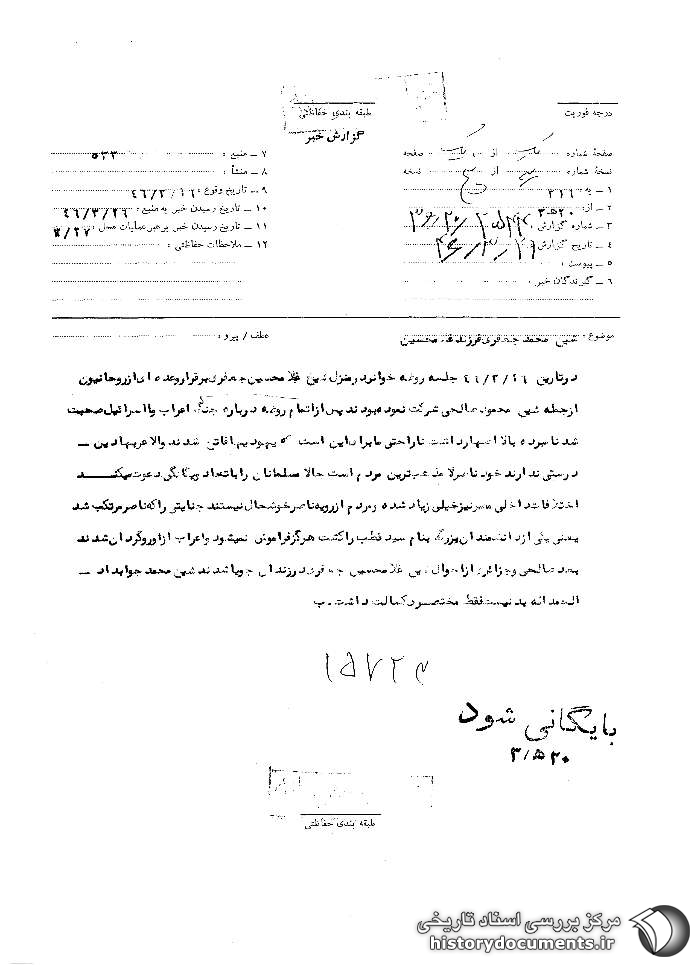 درجه فوریت
طبقه بندی حفاظتی
گزارش خبر
صفحهٔ شماره یک از یک صفحه
نسخهٔ شماره از نسخه
۱ – به ۳۲۶
۲ – از ۳۵۲۰
۳ – شماره گزارش
۴ – تاریخ گزارش
۵ – پیوست :
۶ – گیرندگان خبر :
۷ – منبع : ۵۳۳
۸ – منشأ :
۹ – تاریخ وقوع : ۴۶/۳/۲۶
۱۰ – تاریخ رسیدن خبر به منبع : ۴۶/۳/۲۶
۱۱ – تاریخ رسیدن خبر برهبر عملیات محل : ۳/۲۷
۱۲ – ملاحظات حفاظتی :
موضوع : شیخ محمد جعفری فرزند غلامحسین
عطف / پیرو :
در تاریخ ۴۶/۳/۲۶ جلسه روضه خوانی در منزل شیخ غلامحسین جعفری برقرار و عده ای از روحانیون
از جمله شیخ محمود صالحی شرکت نموده بودند پس از اتمام روضه درباره جنگ اعراب و اسرائیل صحبت
شد نامبرده بالا اظهار داشت ناراحتی ما بر این است که یهودیها فاتح شدند والا عربها دین –
درستی ندارند خود ناصر لا مذهب ترین مردم است حالا مسلمانان را باتحاد ویگانگی دعوت میکند
اختلافات داخلی مصر نیز خیلی زیاد شده و مردم از رویه ناصر خوشحال نیستند جنایتی را که ناصر مرتکب شد
یعنی یکی از دانشمندان بزرگ بنام سید قطب را کشت هرگز فراموش نمیشود و اعراب از او روگردان شدند
بعد صالحی و جزائری از احوال شیخ غلامحسین جعفری در زندان جویا شدند شیخ محمد جواب داد –
الحمدالله بد نیست فقط مختصر کسالت داشت . ب
۱۵۷۲۴
بایگانی شود
۳/۵۲۰
طبقه بندی حفاظتی
مرکز بررسی اسناد تاریخی
historydocuments.ir